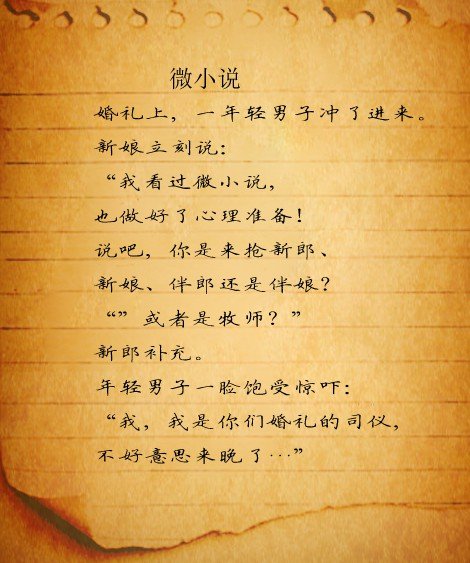 微小说
婚礼上，一年轻男子冲了进来。
新娘立刻说：
“我看过微小说，
也做好了心理准备！
说吧，你是来抢新郎、
新娘、伴郎还是伴娘？
“”或者是牧师？”
新郎补充。
年轻男子一脸饱受惊吓：
“我，我是你们婚礼的司仪，
不好意思来晚了…”